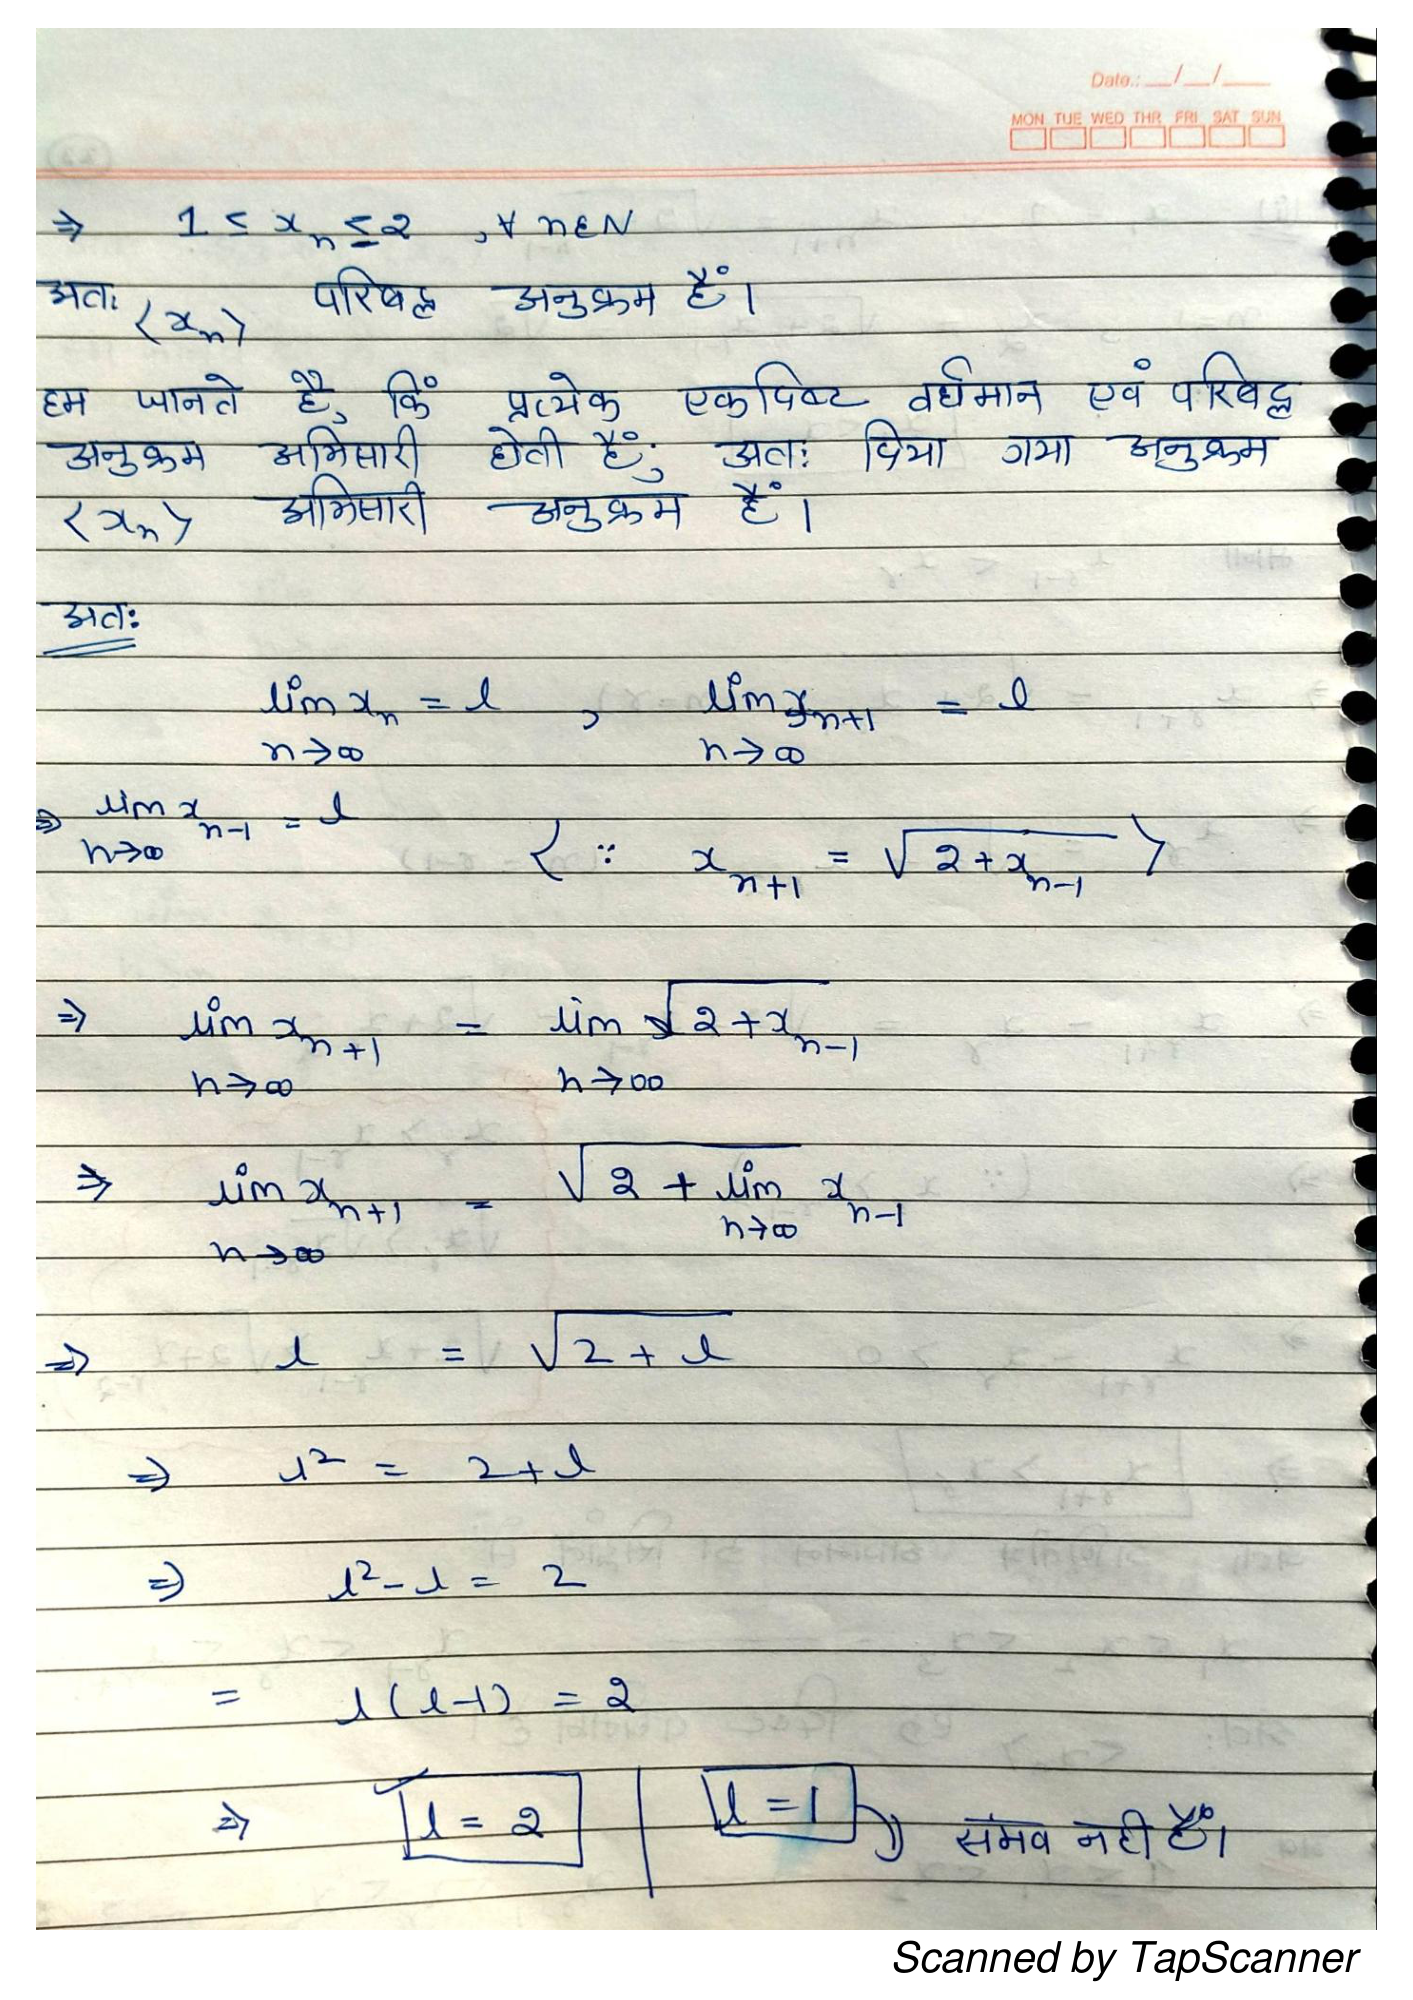 Date.: __/__/____
MON TUE WED THR FRI SAT SUN
⇒ 1 ≤ xₙ ≤ 2 , ∀ n∈N
अतः ⟨xₙ⟩ परिबद्ध अनुक्रम हैं।
हम जानते है, कि प्रत्येक एकदिष्ट वर्धमान एवं परिबद्ध
अनुक्रम अभिसारी होती हैं; अतः दिया गया अनुक्रम
⟨xₙ⟩ अभिसारी अनुक्रम हैं।
अतः
lim xₙ = l , lim xₙ₊₁ = l
n→∞ n→∞
⇒ lim xₙ₋₁ = l ⟨∵ xₙ₊₁ = √(2+xₙ₋₁)⟩
n→∞
⇒ lim xₙ₊₁ = lim √(2+xₙ₋₁)
n→∞ n→∞
⇒ lim xₙ₊₁ = √(2 + lim xₙ₋₁)
n→∞ n→∞
⇒ l = √(2 + l)
⇒ l² = 2+l
⇒ l² - l = 2
= l(l-1) = 2
⇒ l = 2 | l = 1 ⇒ संभव नही हैं।
Scanned by TapScanner